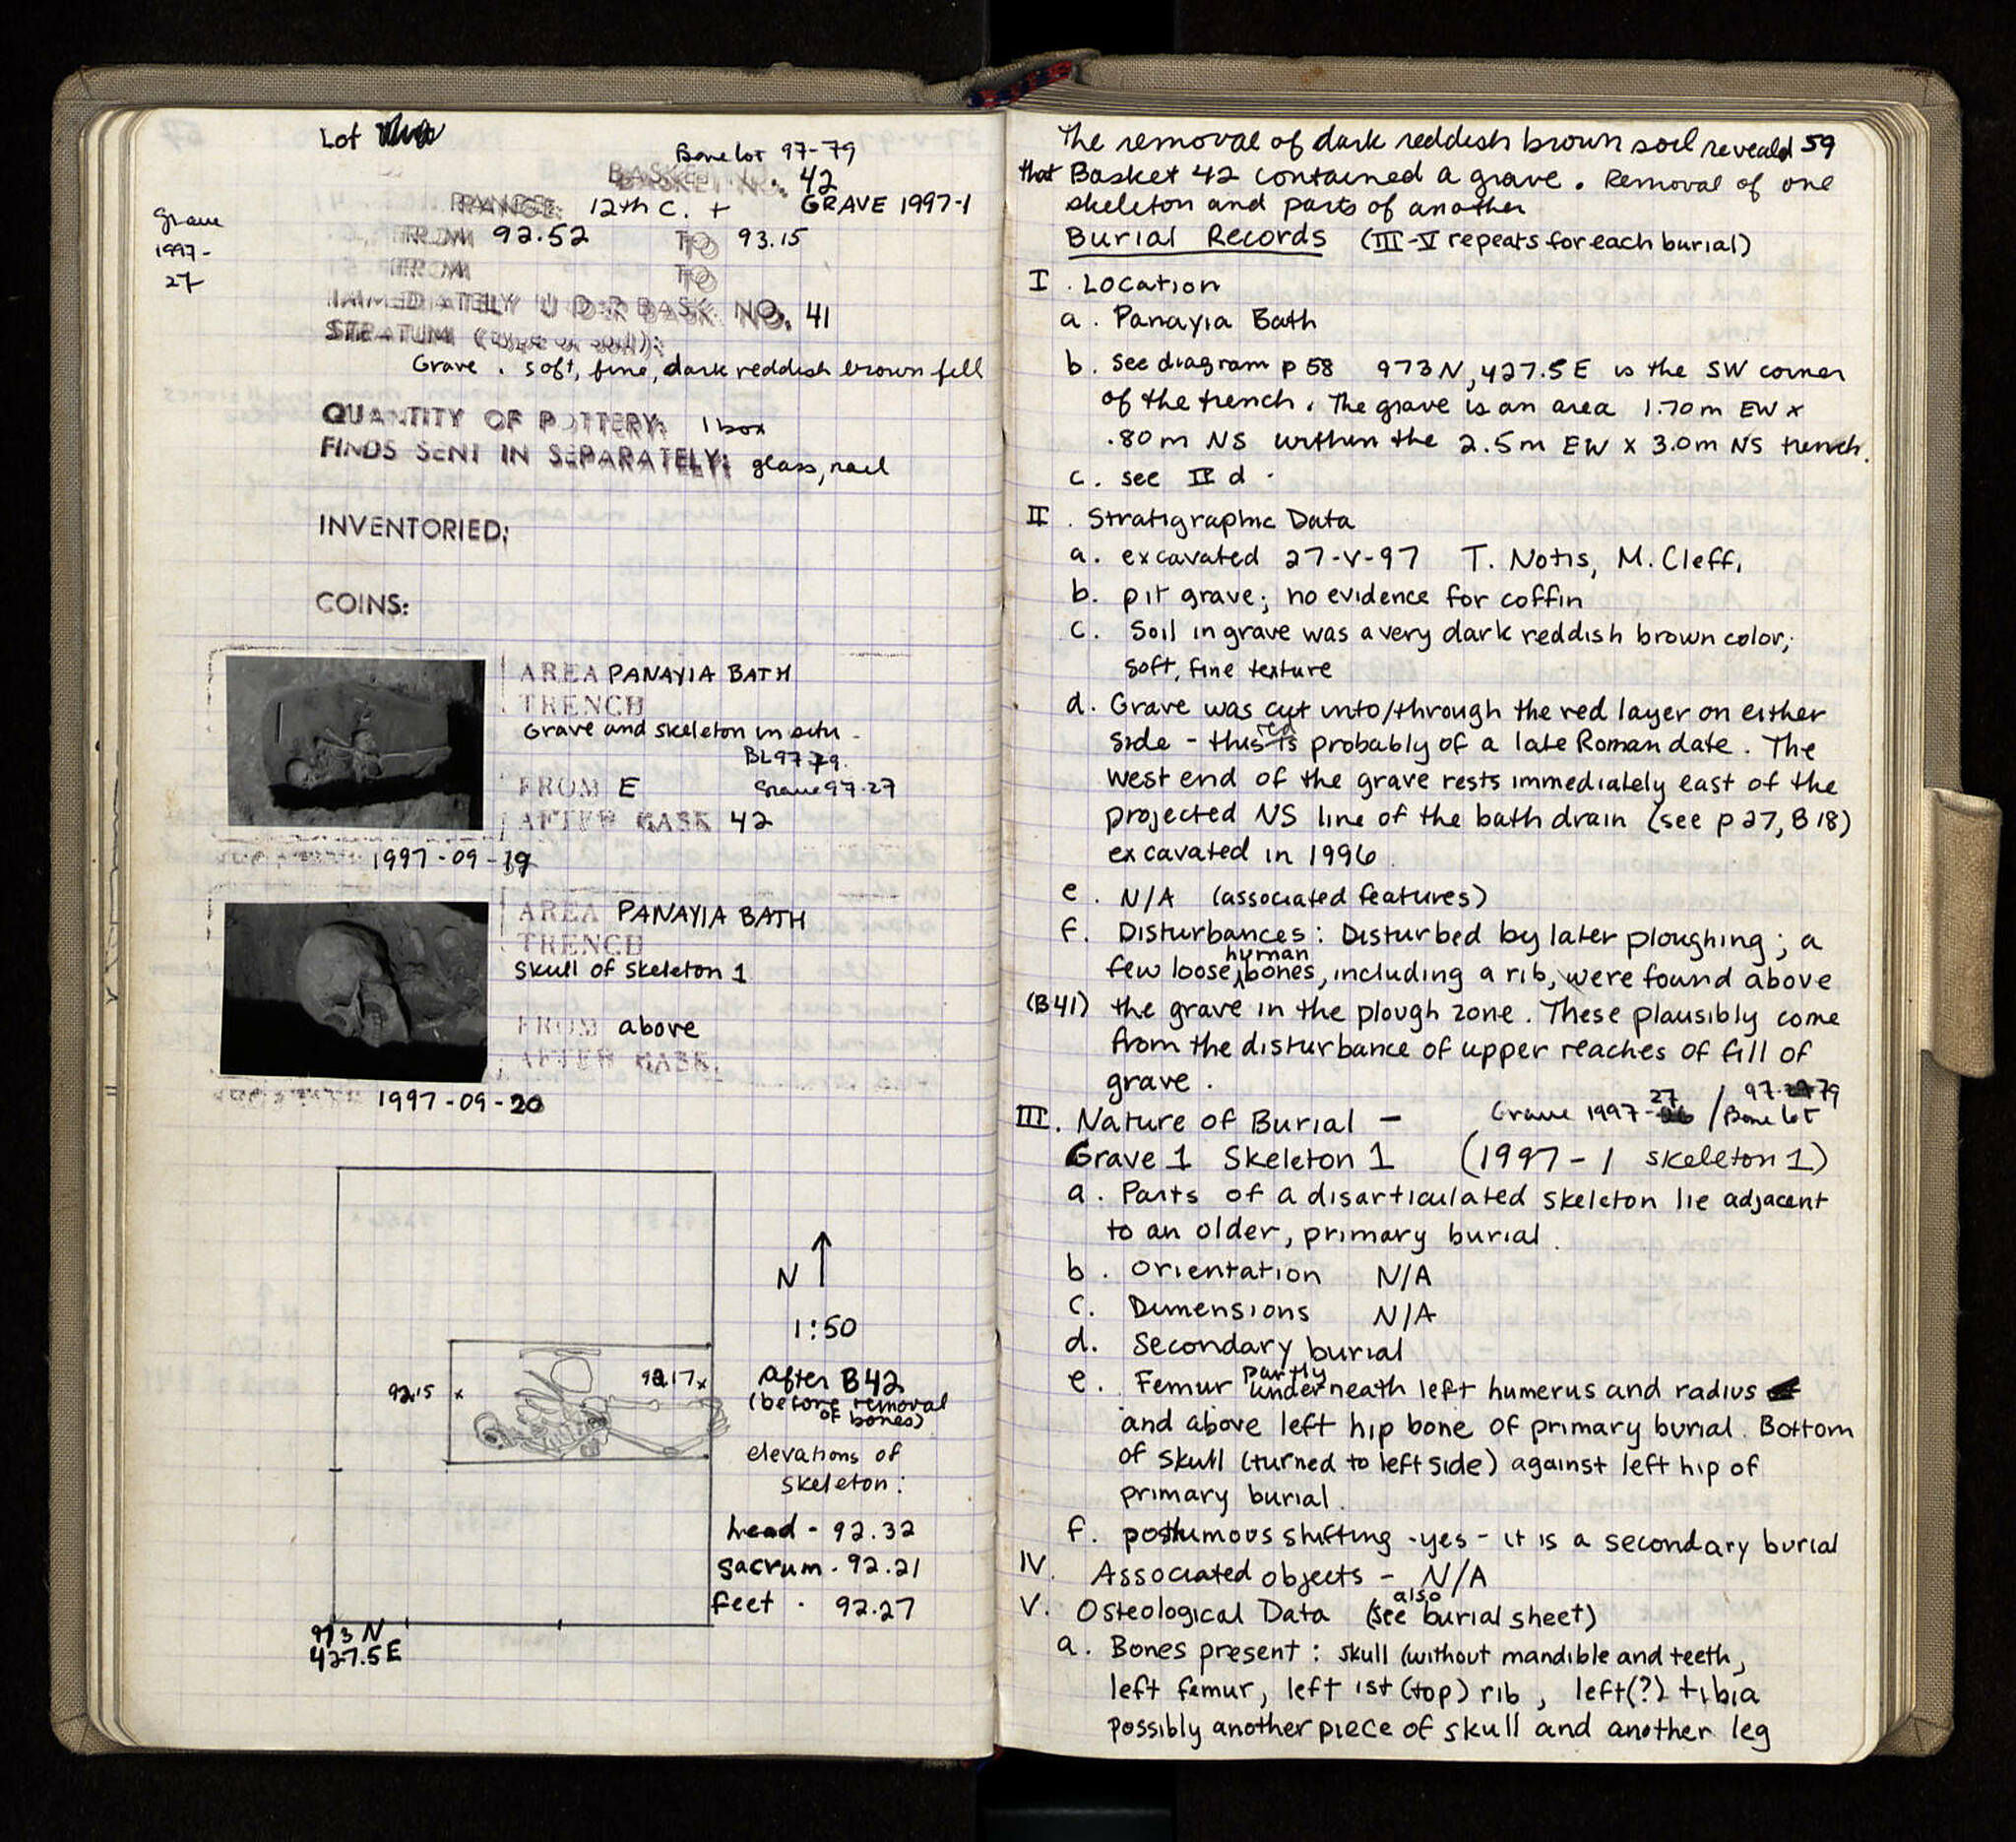 Lot
Bone lot 97-79
BASKET NO. 42
RANGE: 12th C. + GRAVE 1997-1
Grave
1997-
27
FROM 92.52 TO 93.15
FROM TO
IMMEDIATELY UNDER BASK. NO. 41
STRATUM (type of soil):
Grave . soft, fine, dark reddish brown fill
QUANTITY OF POTTERY: 1 box
FINDS SENT IN SEPARATELY: glass, nail
INVENTORIED:
COINS:
AREA PANAYIA BATH
TRENCH
Grave and skeleton in situ -
BL 97 79.
FROM E Grave 97-27
AFTER BASK 42
1997-09-19
AREA PANAYIA BATH
TRENCH
Skull of skeleton 1
FROM above
AFTER BASK.
1997-09-20
N
1:50
92.15 x
92.17 x
after B42
(before removal
of bones)
elevations of
skeleton:
head - 92.32
sacrum - 92.21
feet - 92.27
973 N
427.5 E
The removal of dark reddish brown soil reveald 59
that Basket 42 contained a grave. Removal of one
skeleton and parts of another
Burial Records (III-V repeats for each burial)
I . Location
a. Panayia Bath
b. see diagram p 58 973 N, 427.5 E is the SW corner
of the trench. The grave is an area 1.70 m EW x
.80 m NS within the 2.5 m EW x 3.0 m NS trench.
c. see II d
II . Stratigraphic Data
a. excavated 27-V-97 T. Notis, M. Cleff.
b. pit grave; no evidence for coffin
c. Soil in grave was a very dark reddish brown color;
soft, fine texture
d. Grave was cut into/through the red layer on either
side - this red is probably of a late Roman date. The
west end of the grave rests immediately east of the
projected NS line of the bath drain (see p 27, B 18)
excavated in 1996.
e. N/A (associated features)
f. Disturbances: Disturbed by later ploughing; a
few loose human bones, including a rib, were found above
(B41) the grave in the plough zone. These plausibly come
from the disturbance of upper reaches of fill of
grave.
III. Nature of Burial - Grave 1997-27 / Bone lot 97-79
Grave 1 Skeleton 1 (1997-1 skeleton 1)
a. Parts of a disarticulated skeleton lie adjacent
to an older, primary burial.
b. orientation N/A
c. Dimensions N/A
d. Secondary burial
e. Femur partly underneath left humerus and radius
and above left hip bone of primary burial. Bottom
of skull (turned to left side) against left hip of
primary burial.
f. postumous shifting - yes - it is a secondary burial
IV. Associated objects - N/A
V. Osteological Data (see also burial sheet)
a. Bones present: skull (without mandible and teeth,
left femur, left 1st (top) rib, left(?) tibia
possibly another piece of skull and another leg